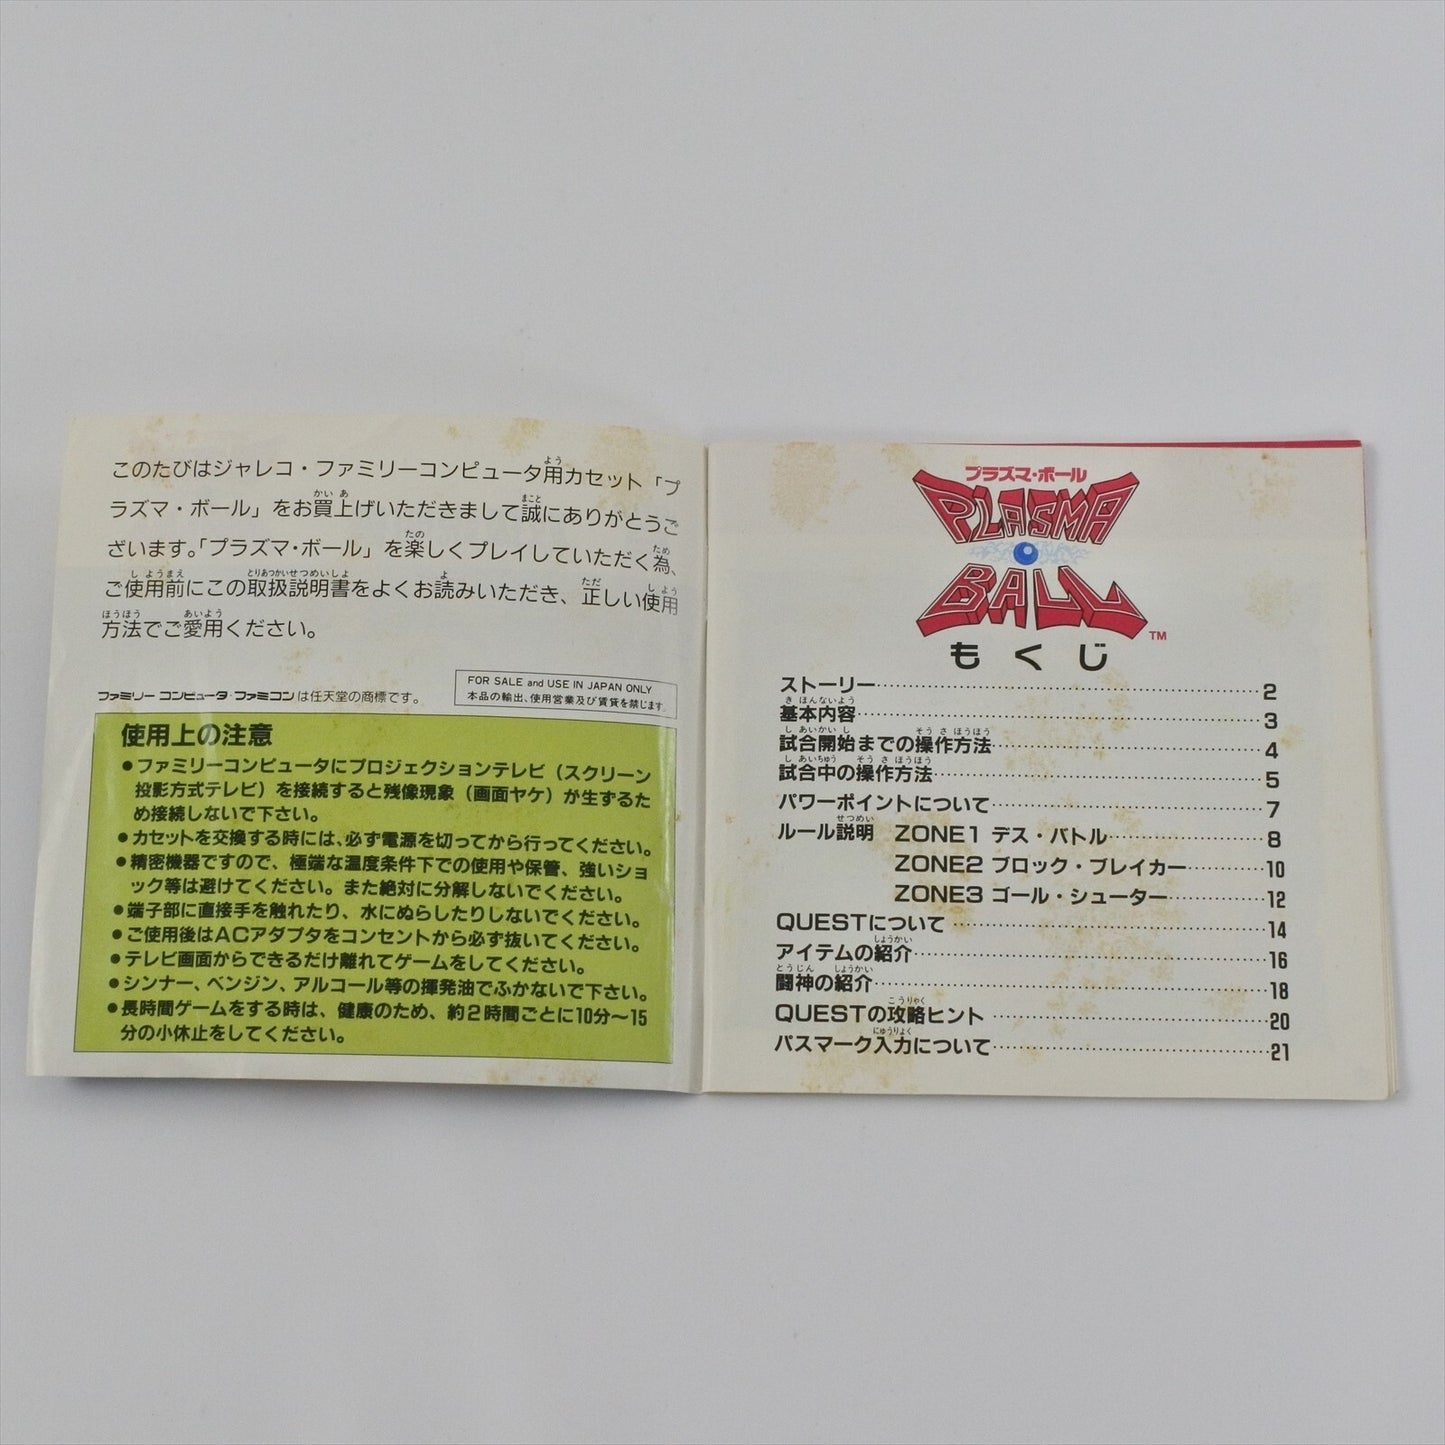 このたびはジャレコ・ファミリーコンピュータ用カセット「プ
ラズマ・ボール」をお買上げいただきまして誠にありがとうご
ざいます。「プラズマ・ボール」を楽しくプレイしていただく為、
ご使用前にこの取扱説明書をよくお読みいただき、正しい使用
方法でご愛用ください。
ファミリーコンピュータ・ファミコンは任天堂の商標です。
FOR SALE and USE IN JAPAN ONLY
本品の輸出、使用営業及び賃貸を禁じます。
使用上の注意
●ファミリーコンピュータにプロジェクションテレビ（スクリーン
投影方式テレビ）を接続すると残像現象（画面ヤケ）が生ずるた
め接続しないで下さい。
●カセットを交換する時には、必ず電源を切ってから行ってください。
●精密機器ですので、極端な温度条件下での使用や保管、強いショ
ック等は避けてください。また絶対に分解しないでください。
●端子部に直接手を触れたり、水にぬらしたりしないでください。
●ご使用後はACアダプタをコンセントから必ず抜いてください。
●テレビ画面からできるだけ離れてゲームをしてください。
●シンナー、ベンジン、アルコール等の揮発油でふかないで下さい。
●長時間ゲームをする時は、健康のため、約2時間ごとに10分～15
分の小休止をしてください。
プラズマ・ボール
PLASMA
BALL™
もくじ
ストーリー……2
基本内容……3
試合開始までの操作方法……4
試合中の操作方法……5
パワーポイントについて……7
ルール説明 ZONE1 デス・バトル……8
ZONE2 ブロック・ブレイカー……10
ZONE3 ゴール・シューター……12
QUESTについて……14
アイテムの紹介……16
闘神の紹介……18
QUESTの攻略ヒント……20
パスマーク入力について……21